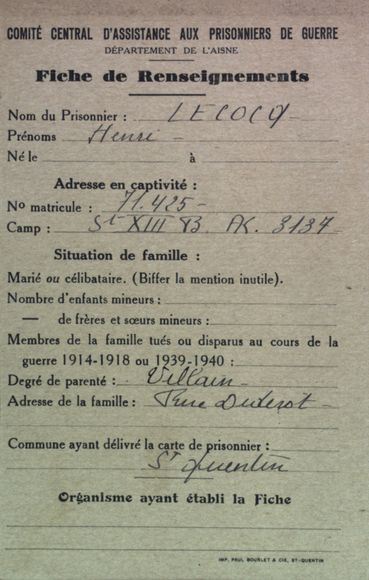 COMITÉ CENTRAL D'ASSISTANCE AUX PRISONNIERS DE GUERRE
DÉPARTEMENT DE L'AISNE
Fiche de Renseignements
Nom du Prisonnier : LECOCQ
Prénoms Henri
Né le à
Adresse en captivité :
No matricule : 71.425
Camp : St XIII B3. AK. 3137
Situation de famille :
Marié ou célibataire. (Biffer la mention inutile).
Nombre d'enfants mineurs :
— de frères et sœurs mineurs :
Membres de la famille tués ou disparus au cours de la
guerre 1914-1918 ou 1939-1940 :
Degré de parenté : Villain
Adresse de la famille : Rue Diderot
Commune ayant délivré la carte de prisonnier :
St Quentin
Organisme ayant établi la Fiche
IMP. PAUL BOURLET & CIE, ST-QUENTIN